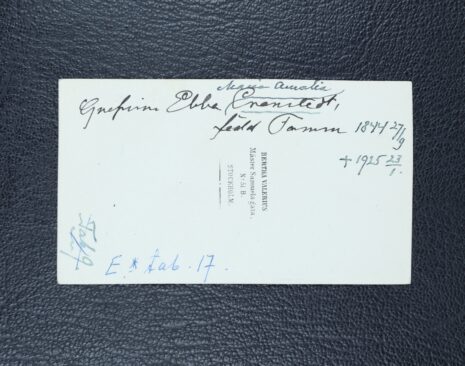 Maria Amalia
Ebba Cronstedt,
född Tamm 1844 27/9
+ 1925 23/1.
BERTHA VALERIUS
Mäster Samuels gata,
N: 51 B.
STOCKHOLM.
Tab 9
E. tab. 17.